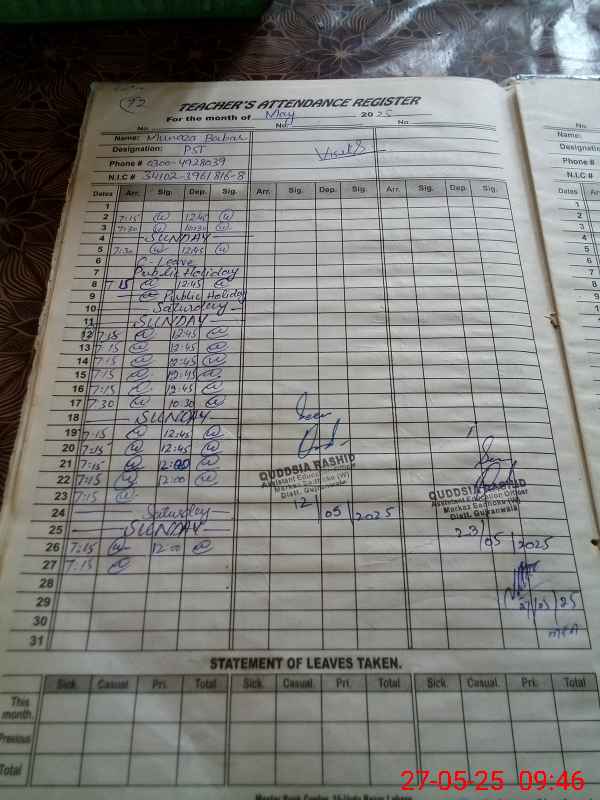 92
TEACHER'S ATTENDANCE REGISTER
For the month of May 2025
No. No. No.
Name: Muneza Babar
Designation: PST
Visits
Phone # 0300-4928039
N.I.C # 34102-3961816-8
Dates Arr. Sig. Dep. Sig. Arr. Sig. Dep. Sig. Arr. Sig. Dep. Sig.
1
2 7:15 12:45
3 7:30 10:30
4 SUNDAY
5 7:30 12:45
6 C-Leave
7 Public Holiday
8 7:15 12:45
9 Public Holiday
10 Saturday
11 SUNDAY
12 7:15 12:45
13 7:15 12:45
14 7:15 12:45
15 7:15 12:45
16 7:15 12:45
17 7:30 10:30
18 SUNDAY
19 7:15 12:45
20 7:15 12:45
21 7:15 12:00
22 7:15 12:00
23 7:15
24 Saturday
25 SUNDAY
26 7:15 12:00
27 7:15
28
29
30
31
Seen
QUDDSIA RASHID
Assistant Education Officer
Markaz Sadhoke (W)
Distt. Gujranwala
12/05/2025
Seen
QUDDSIA RASHID
Assistant Education Officer
Markaz Sadhoke (W)
Distt. Gujranwala
23/05/2025
27/05/25
MEA
STATEMENT OF LEAVES TAKEN.
Sick. Casual. Pri. Total Sick. Casual. Pri. Total Sick. Casual. Pri. Total
This month.
Previous
Total
27-05-25 09:46